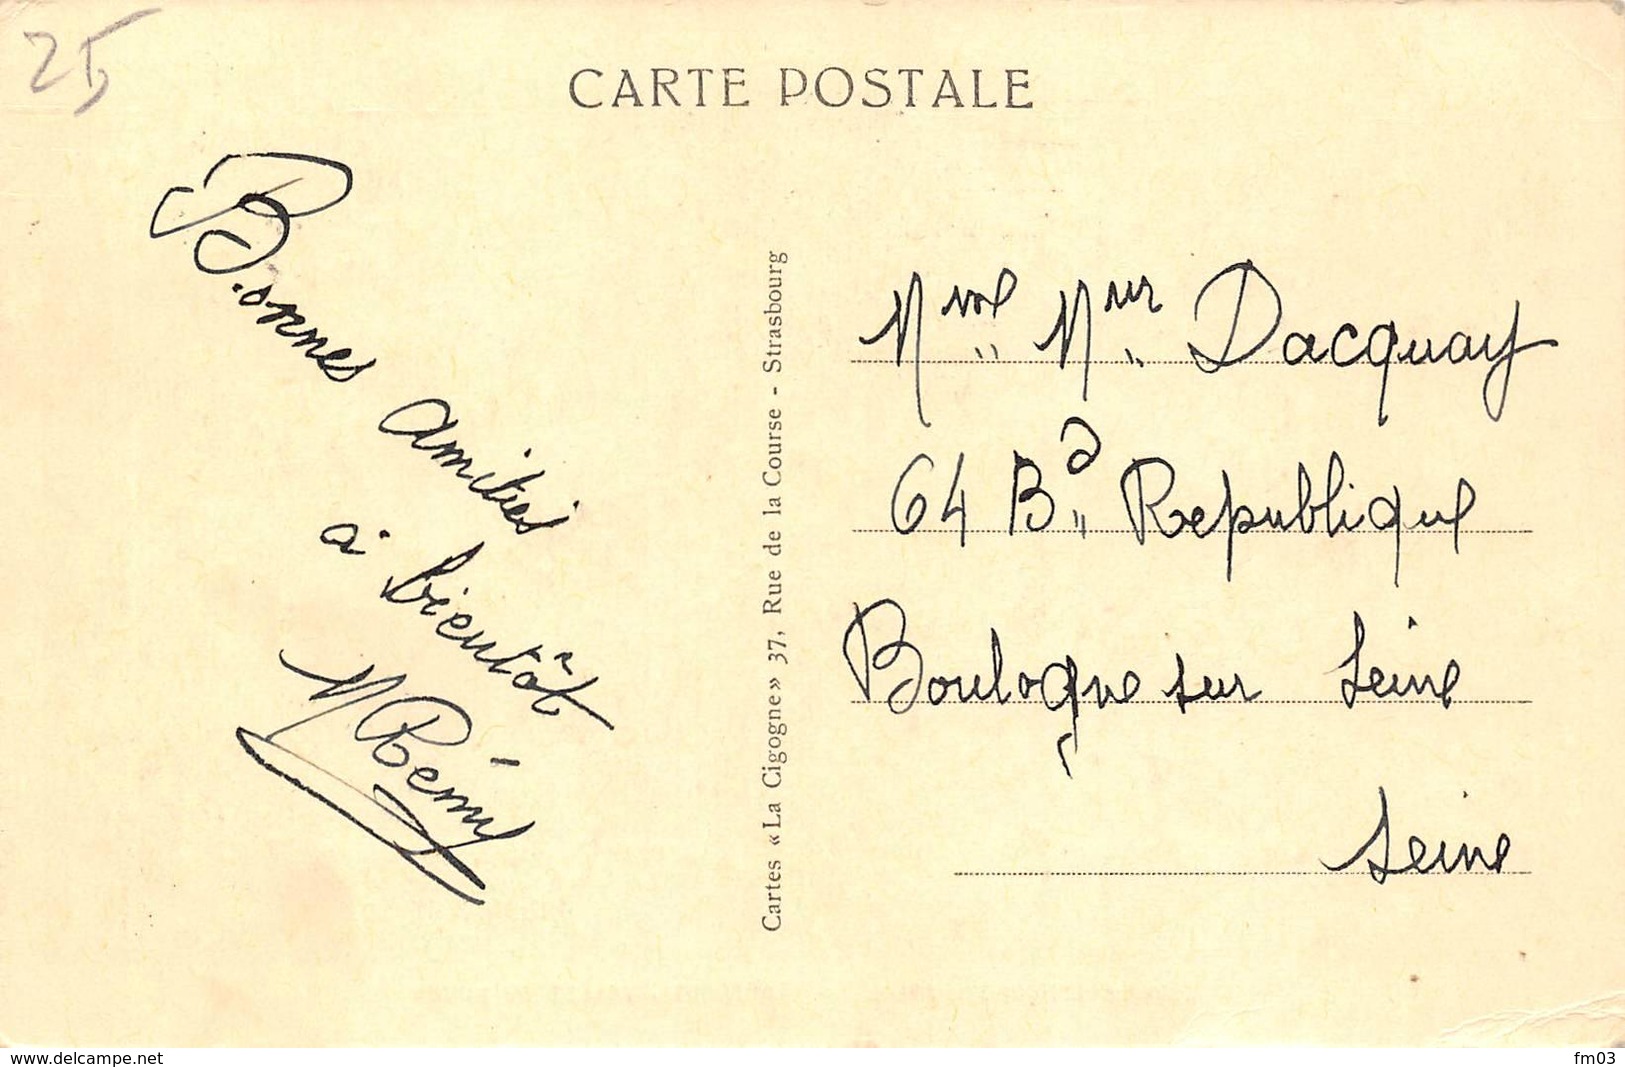 25
CARTE POSTALE
Bonnes amitiés
à bientôt
M Rémy
Cartes « La Cigogne » 37, Rue de la Course - Strasbourg
Mme Mur Dacquay
64 Bd Republique
Boulogne sur Seine
Seine
www.delcampe.net
fm03